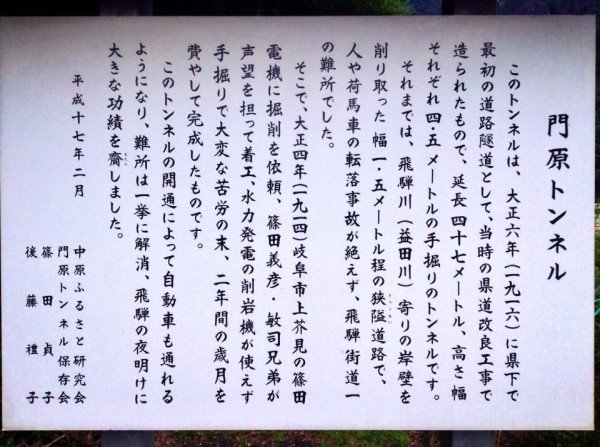 門原トンネル
このトンネルは、大正六年(一九一六)に県下で
最初の道路隧道として、当時の県道改良工事で
造られたもので、延長四十七メートル、高さ幅
それぞれ四・五メートルの手掘りのトンネルです。
それまでは、飛騨川(益田川)寄りの岸壁を
削り取った幅一・五メートル程の狭隘道路で、
人や荷馬車の転落事故が絶えず、飛騨街道一
の難所でした。
そこで、大正四年(一九一四)岐阜市上芥見の篠田
電機に掘削を依頼、篠田義彦・敏司兄弟が
声望を担って着工、水力発電の削岩機が使えず
手掘りで大変な苦労の末、二年間の歳月を
費やして完成したものです。
このトンネルの開通によって自動車も通れる
ようになり、難所は一挙に解消、飛騨の夜明けに
大きな功績を齎しました。
平成十七年二月
中原ふるさと研究会
門原トンネル保存会
篠田貞子
後藤禮子